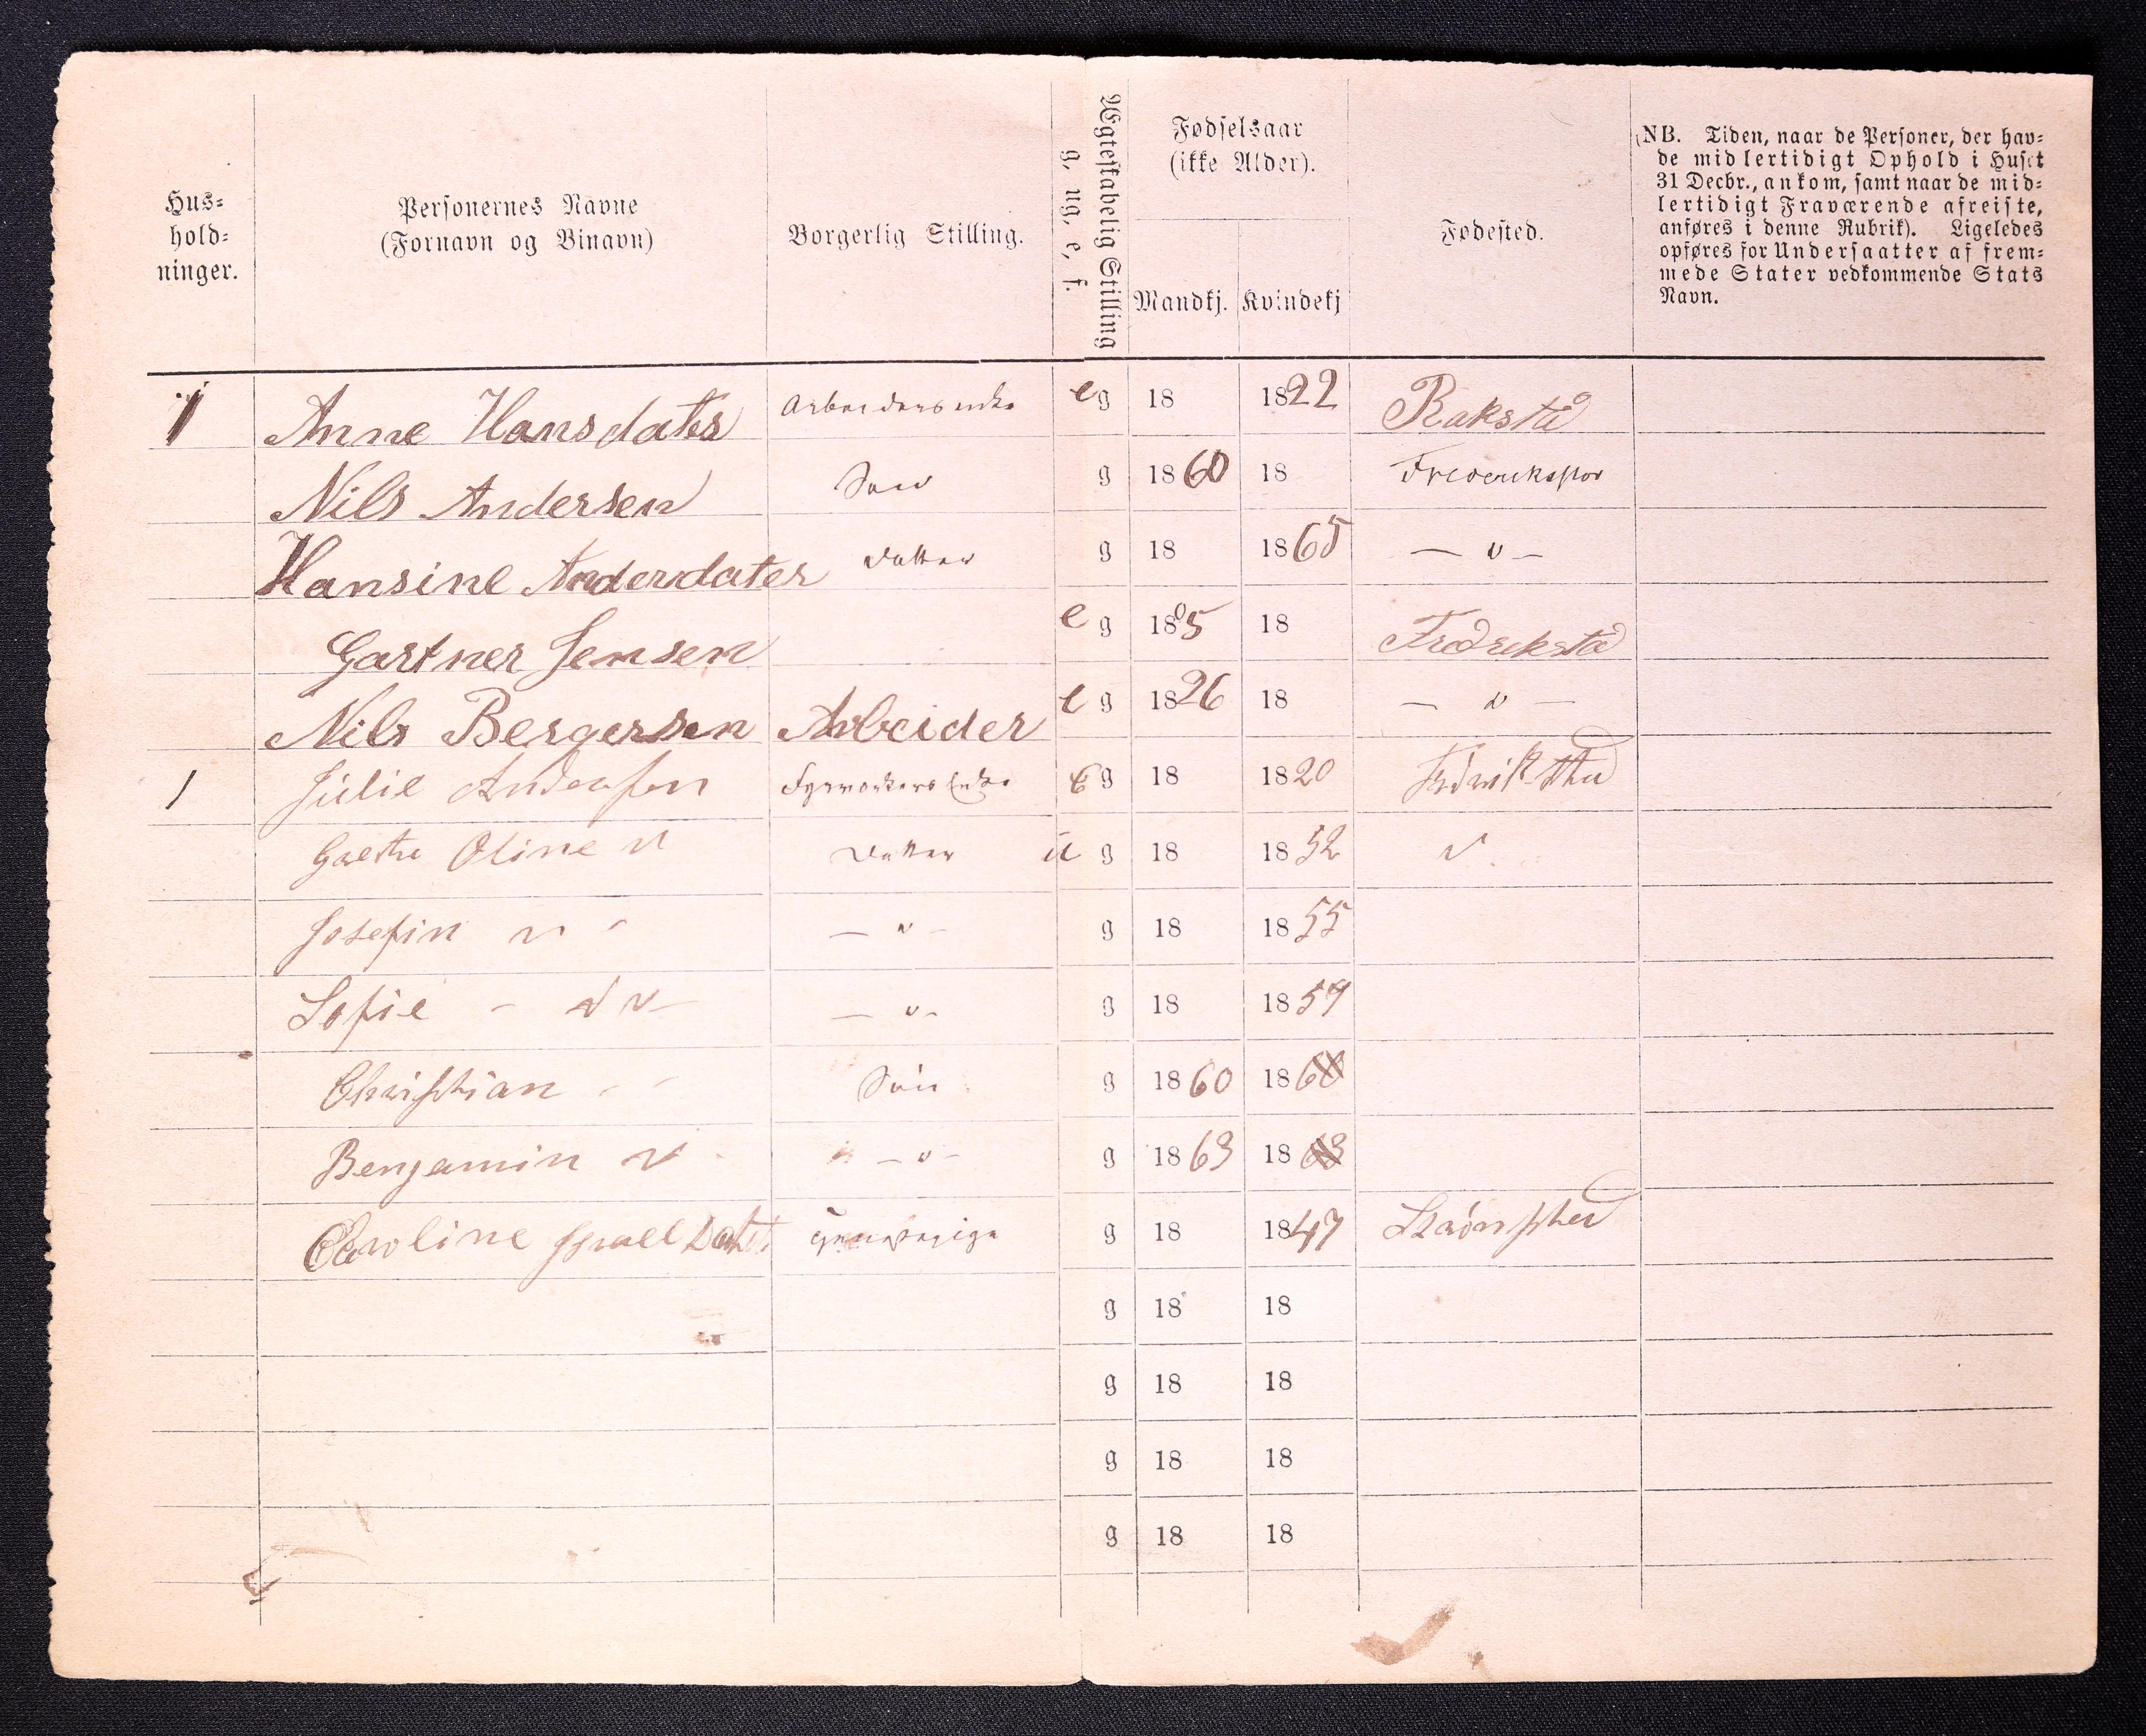 Hus-
hold-
ninger.
Personernes Navne
(Fornavn og Binavn)
Borgerlig Stilling.
Ægteskabelig Stilling
g, ug, e, f.
Fødselsaar
(ikke Alder).
Mandkj. Kvindekj
Fødested.
(NB. Tiden, naar de Personer, der hav-
de midlertidigt Ophold i Huset
31 Decbr., ankom, samt naar de mid-
lertidigt Fraværende afreiste,
anføres i denne Rubrik). Ligeledes
opføres for Undersaatter af frem-
mede Stater vedkommende Stats
Navn.
1 Anne Hansdater Arbeidersenke e g 18 1822 Rakstad
Nils Andersen Søn g 1860 18 Frederikstad
Hansine Andersdater Datter g 18 1865 — " —
Gartner Jensen e g 1805 18 Fredrikstad
Nils Bergersen Arbeider e g 1826 18 — " —
1 Julie Andersen Enke E g 18 1820
Oline " Datter u g 18 1852 "
Josefin " - — " - g 18 1855
Sofie - " " — " - g 18 1859
Christian - - Søn g 1860 1860
Benjamin " - " - g 1863 1863
Caroline Israelsdatter g 18 1847
g 18 18
g 18 18
g 18 18
g 18 18